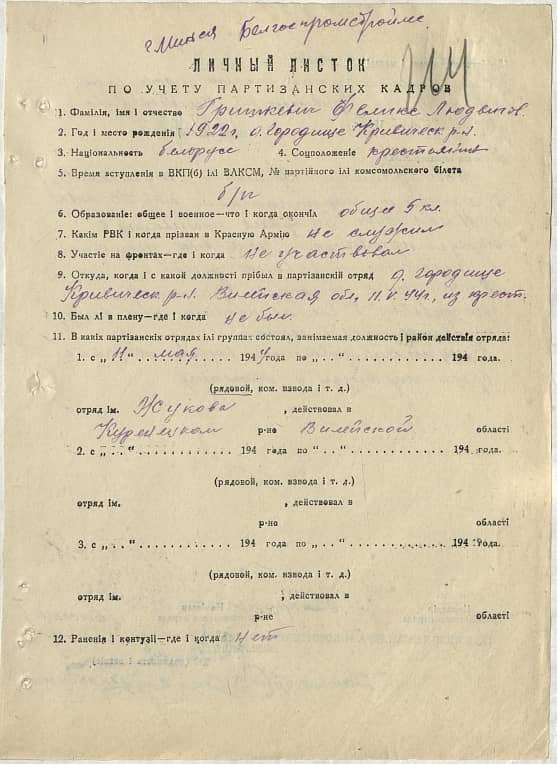 г. Минск Белгоспромстрой
ЛИЧНЫЙ ЛИСТОК
ПО УЧЕТУ ПАРТИЗАНСКИХ КАДРОВ
1. Фамілія, імя і отчество Грицкевич Феликс Людвигов.
2. Год і место рождения 1922 г. д. Городище Кривическ р-л.
3. Національность белорусс 4. Соцположеніе крестьянин
5. Время вступленія в ВКП(б) ілі ВЛКСМ, № партійного ілі комсомольского білета
б/п
6. Образованіе: общее і военное—что і когда окончіл общее 5 кл.
7. Какім РВК і когда прізван в Красную Армію не служил
8. Участіе на фронтах—где і когда Не участвовал
9. Откуда, когда і с какой должності прібыл в партізанскій отряд д. Городище
Кривическ р-л. Вилейская обл, 11.V.44г., из крест.
10. Был лі в плену—где і когда не был.
11. В каких партізанскіх отрядах ілі группах состоял, занімаемая должность і район действія отряда:
1. с „ 11 “ мая 1944 года по „ . . “ . . . . . . . . . 194 года.
(рядовой, ком. взвода і т. д.)
отряд ім. Жукова , действовал в
р-не Вилейской області
2. с „ . . “ . . . . . . . . . . 194 года по „ . . “ . . . . . . . . . . 194 года.
(рядовой, ком. взвода і т. д.)
отряд ім. , действовал в
р-не області
3. с „ . . “ . . . . . . . . . . 194 года по „ . . “ . . . . . . . . . . 194 года.
(рядовой, ком. взвода і т. д.)
отряд ім. , действовал в
р-не області
12. Раненія і контузіі—где і когда нет